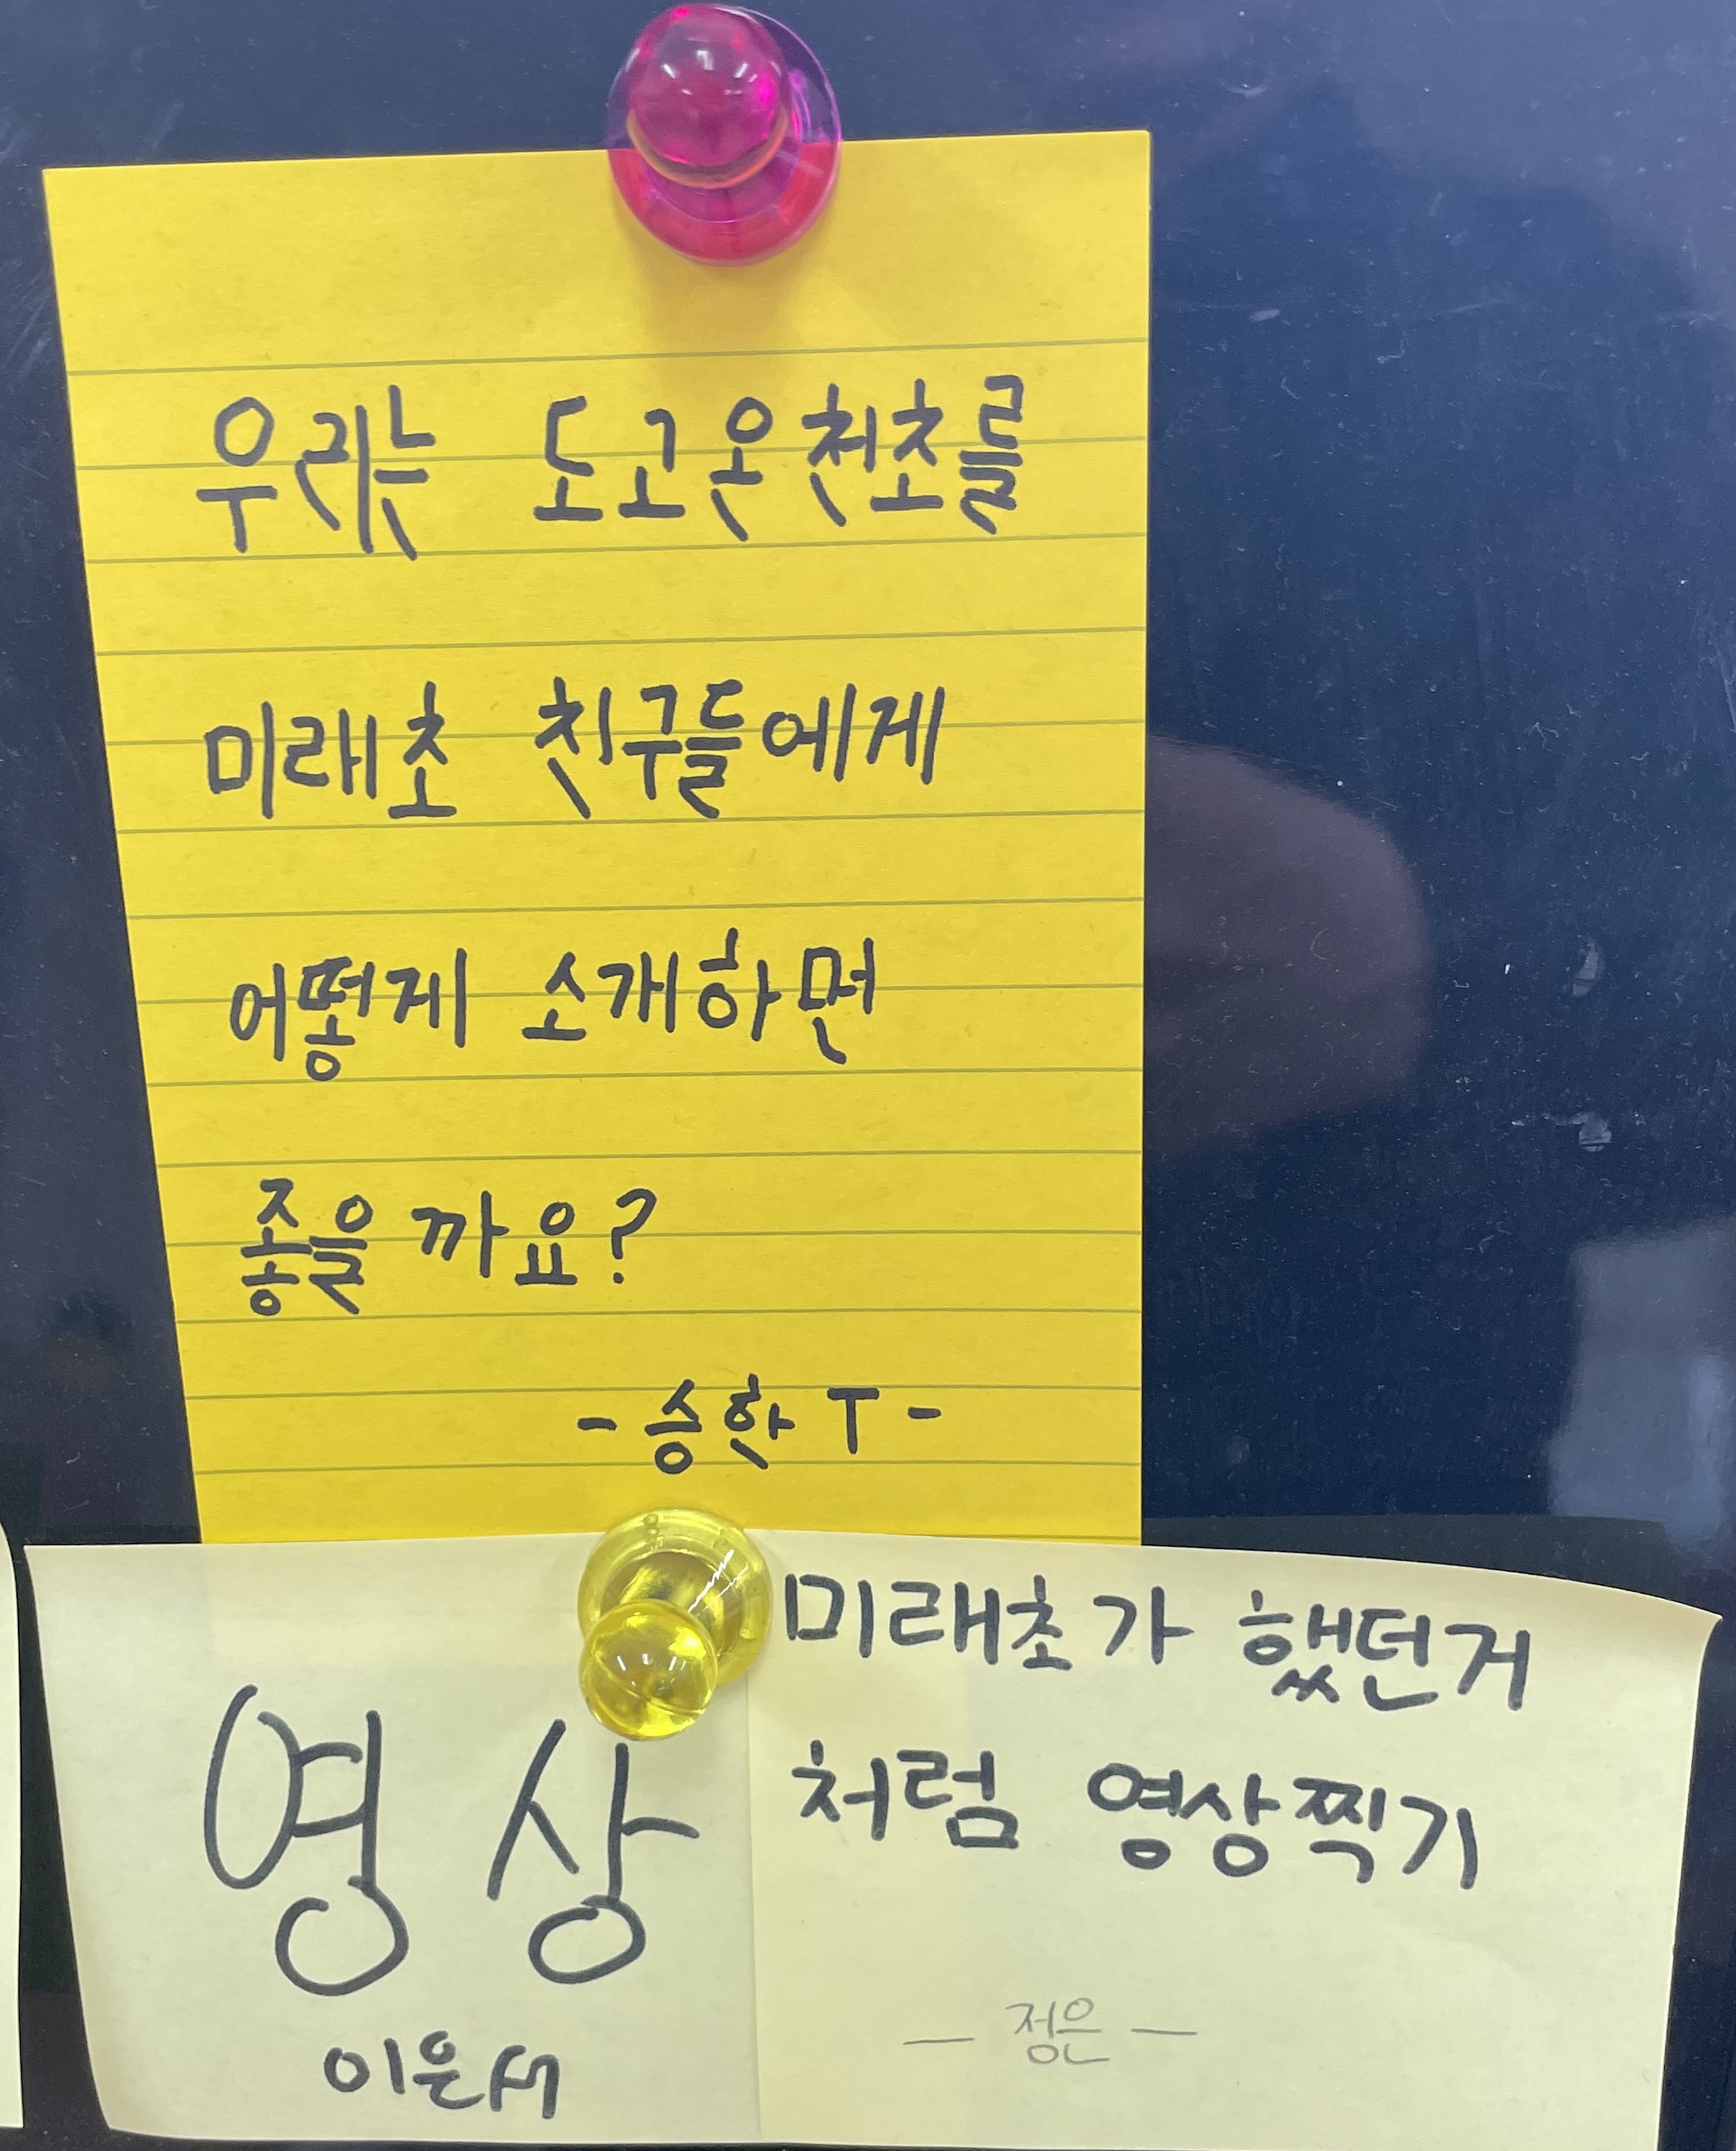 우리는 도고온천초를
미래초 친구들에게
어떻게 소개하면
좋을까요?
- 승한 T -
영상
이은서
미래초가 했던거
처럼 영상찍기
- 정은 -